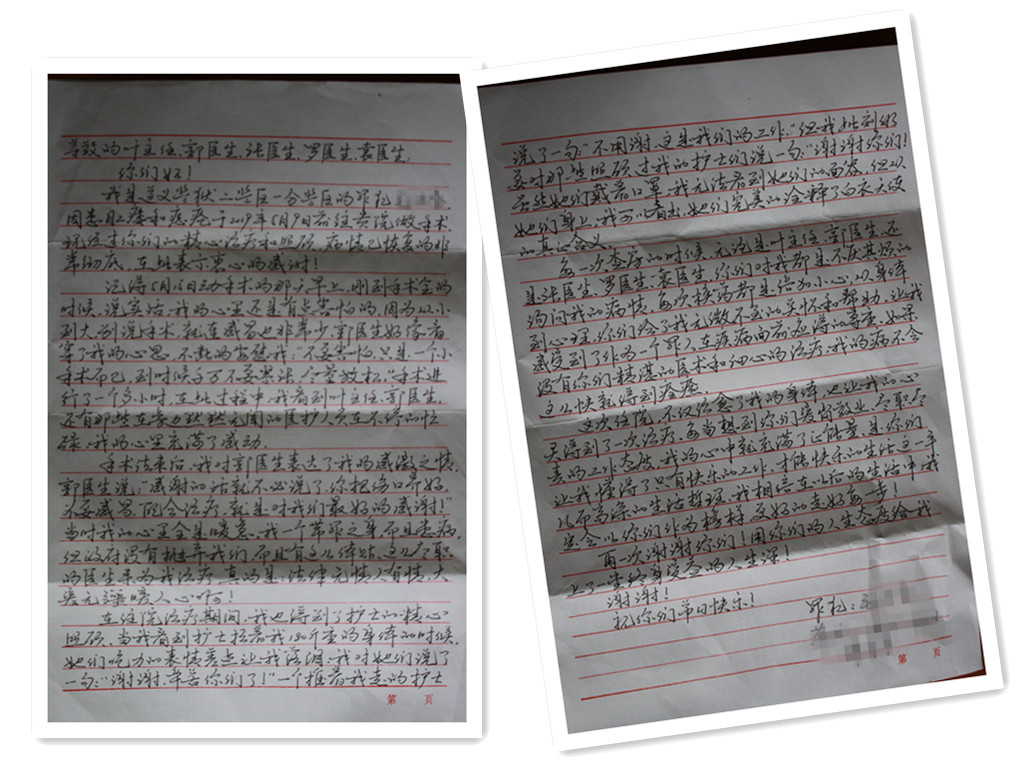 尊敬的叶主任、郭医生、张医生、罗医生、袁医生,
你们好!
我是遵义监狱二监区一分监区的罪犯
因患 和痔疮,于2019年5月9日前往贵院做手术,
现经过你们的精心治疗和照顾,病情已恢复的非
常彻底,在此表示衷心的感谢!
记得5月15日动手术的那天早上,刚到手术室的
时候,说实话,我的心里还是有点害怕的,因为从小
到大,别说手术,就连感冒也非常少,郭医生好像看
穿了我的心思,不断的安慰我,“不要害怕,只是一个小
手术而已,到时候千万不要紧张,尽量放松,”手术进
行了一个多小时,在此过程中,我看到叶主任、郭医生,
还有那些在旁边默默无闻的医护人员在不停的忙
碌,我的心里充满了感动。
手术结束后,我对郭医生表达了我的感激之情,
郭医生说:“感谢的话就不必说了,你把伤口养好,
不要感冒,配合治疗,就是对我们最好的感谢!”
当时我的心里全是暖意,我一个苇罪之身,而且患病,
但政府没有抛弃我们,而且有这么体贴、这么尽职
的医生来为我治疗,真的是,法律无情人有情,大
爱无疆暖人心啊!
在住院治疗期间,我也得到了护士的精心
照顾,当我看到护士抬着我180斤重的身体的时候,
她们吃力的表情差点让我落泪,我对她们说了
一句:“谢谢,辛苦你们了!”一个推着我走的护士
第 页
说了一句“不用谢,这是我们的工作,”但我此刻多
要对那些照顾过我的护士们说一句:“谢谢你们!
虽然她们戴着口罩,我无法看到她们的面容,但从
她们身上,我可以看出,她们完美的诠释了白衣天使
的真正含义。
每一次查房的时候,无论是叶主任、郭医生,还
是张医生、罗医生、袁医生,你们对我都是不厌其烦的
询问我的病情,每次换药都是倍加小心,从身体
到心理,你们给了我无微不至的关怀和帮助,让我
感受到了作为一个罪人在疾病面前应得的尊重,如果
没有你们精湛的医术和细心的治疗,我的病不会
这么快就得到痊愈。
这次住院,不仅治愈了我的身体,也让我的心
灵得到了一次治疗,每当想到你们爱岗敬业、尽职尽
责的工作态度,我的心中就充满了正能量,是你们
让我懂得了只有快乐的工作,才能快乐的生活这一平
凡而高深的生活哲理,我相信在以后的生活中,我
定会以你们作为榜样,更好的走好每一步!
再一次谢谢你们!用你们的人生态度给我
上了一堂终身受益的人生课!
谢谢!
祝你们节日快乐!
罪犯:
第 页